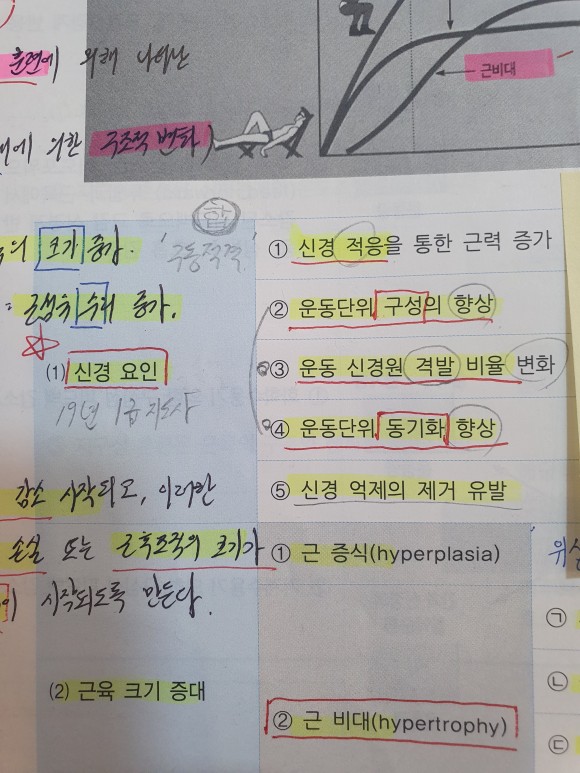 훈련에 의해 나타난
근비대
에 의한 구조적 변화)
합
의 크기 증가.
'구동적격'
① 신경 적응을 통한 근력 증가
= 근섬유 수의 증가.
② 운동단위 구성의 향상
(1) 신경 요인
③ 운동 신경원 격발 비율 변화
19년 1급 지도사
④ 운동단위 동기화 향상
감소 시작되고, 이러한
⑤ 신경 억제의 제거 유발
손실 또는 근육조직의 크기가
① 근 증식(hyperplasia)
이 시작되도록 만든다.
㉠
(2) 근육 크기 증대
㉡
② 근 비대(hypertrophy)
㉢